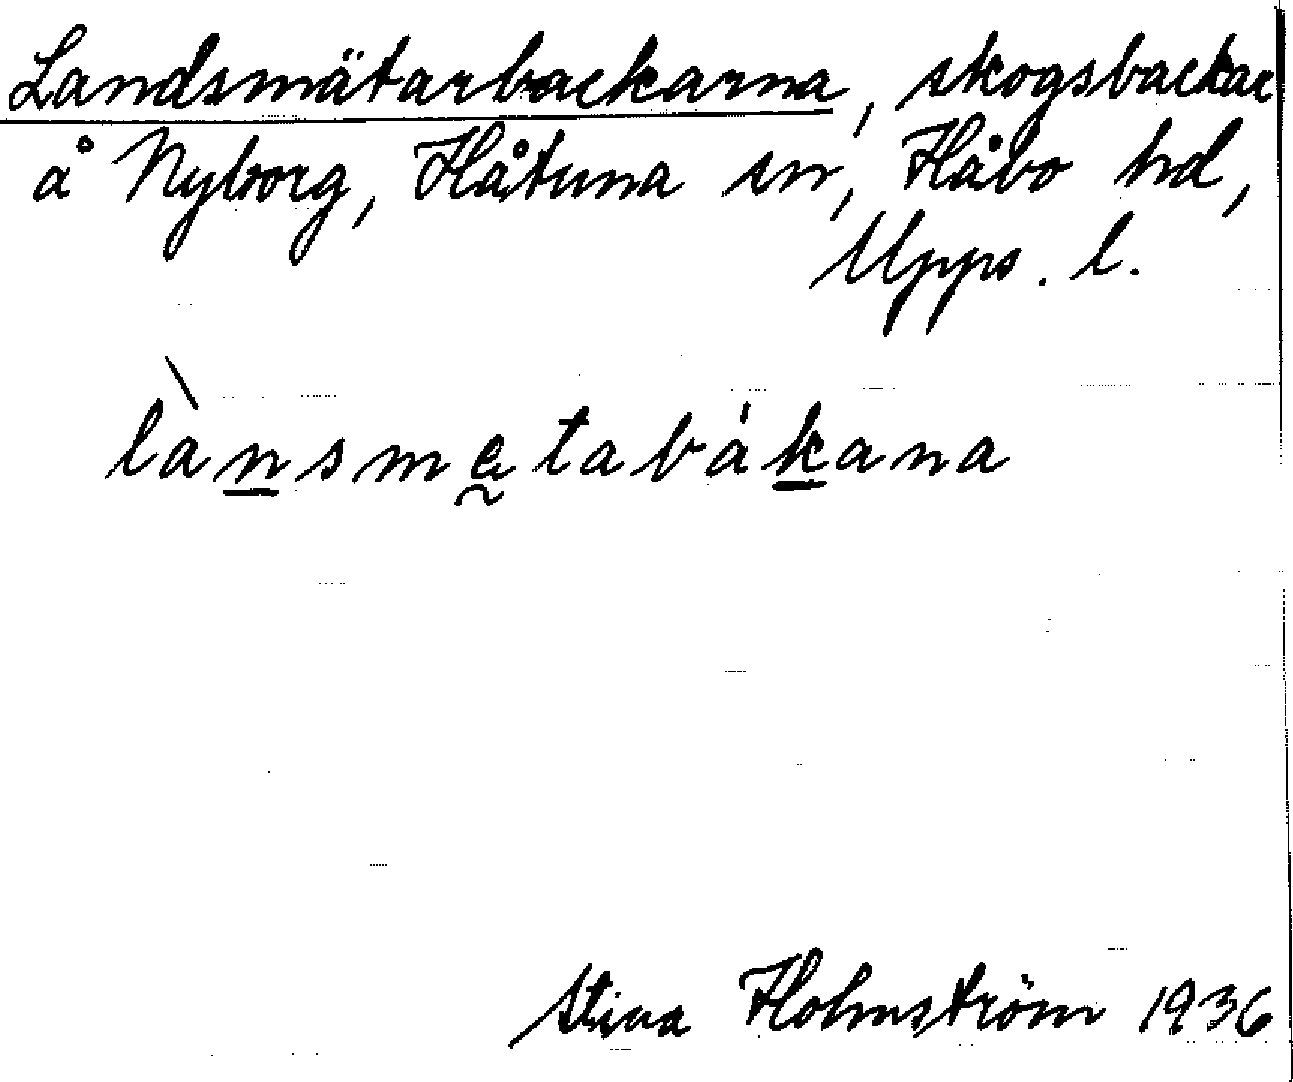 Landsmätarbackarna, skogsbackar
å Nyborg, Håtuna sn, Håbo hd,
Upps. l.
lànsmätabákana
Stina Holmström 1936